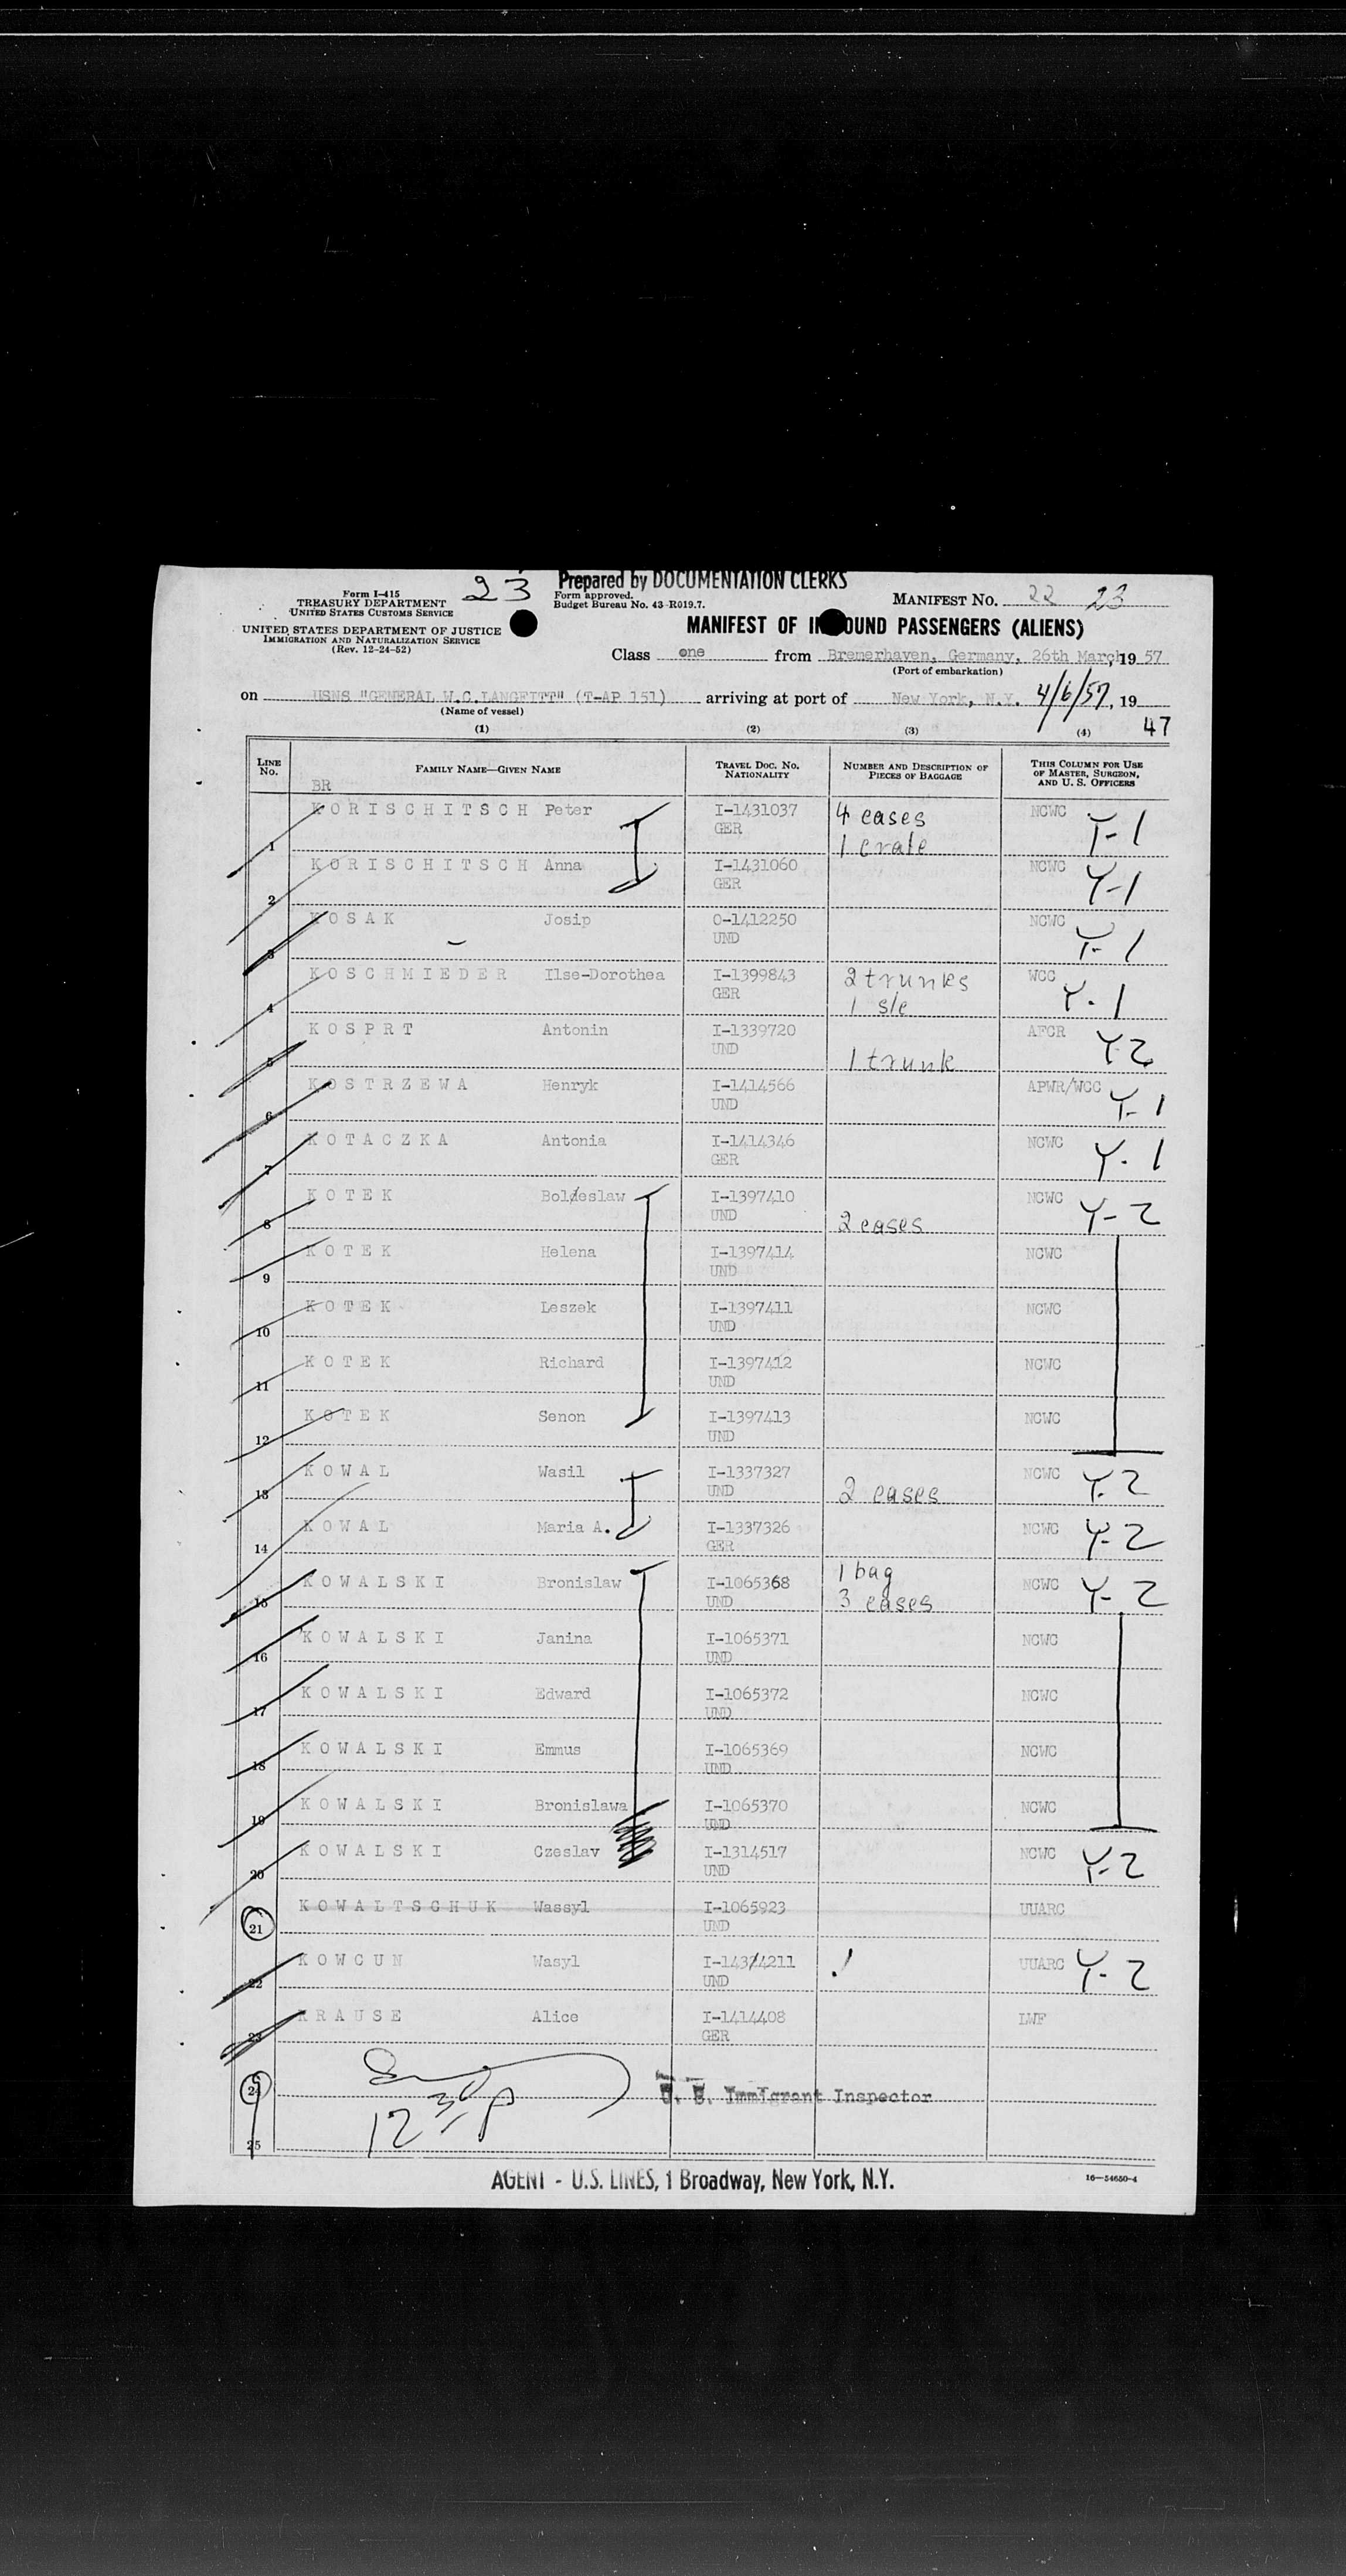 Prepared by DOCUMENTATION CLERKS
Form I-415
TREASURY DEPARTMENT
UNITED STATES CUSTOMS SERVICE
23
Form approved.
Budget Bureau No. 43-R019.7.
MANIFEST NO. 22 23
UNITED STATES DEPARTMENT OF JUSTICE
IMMIGRATION AND NATURALIZATION SERVICE
(Rev. 12-24-52)
MANIFEST OF INBOUND PASSENGERS (ALIENS)
Class one from Bremerhaven, Germany, 26th March, 19 57
(Port of embarkation)
on USNS "GENERAL W.C.LANGFITT" (T-AP 151) arriving at port of New York, N.Y. 4/6/57, 19
(Name of vessel)
47
(1) (2) (3) (4)
LINE NO. FAMILY NAME—GIVEN NAME TRAVEL DOC. NO. NATIONALITY NUMBER AND DESCRIPTION OF PIECES OF BAGGAGE THIS COLUMN FOR USE OF MASTER, SURGEON, AND U. S. OFFICERS
BR
1 KORISCHITSCH Peter I-1431037 GER 4 cases 1 crate NCWC Y-1
2 KORISCHITSCH Anna I-1431060 GER NCWC Y-1
3 KOSAK Josip O-1412250 UND NCWC Y-1
4 KOSCHMIEDER Ilse-Dorothea I-1399843 GER 2 trunks 1 s/c WCC Y-1
5 KOSPRT Antonin I-1339720 UND 1 trunk AFCR Y-2
6 KOSTRZEWA Henryk I-1414566 UND APWR/WCC Y-1
7 KOTACZKA Antonia I-1414346 GER NCWC Y-1
8 KOTEK Boleslaw I-1397410 UND 2 cases NCWC Y-2
9 KOTEK Helena I-1397414 UND NCWC
10 KOTEK Leszek I-1397411 UND NCWC
11 KOTEK Richard I-1397412 UND NCWC
12 KOTEK Senon I-1397413 UND NCWC
13 KOWAL Wasil I-1337327 UND 2 cases NCWC Y-2
14 KOWAL Maria A. I-1337326 GER NCWC Y-2
15 KOWALSKI Bronislaw I-1065368 UND 1 bag 3 cases NCWC Y-2
16 KOWALSKI Janina I-1065371 UND NCWC
17 KOWALSKI Edward I-1065372 UND NCWC
18 KOWALSKI Emmus I-1065369 UND NCWC
19 KOWALSKI Bronislawa I-1065370 UND NCWC
20 KOWALSKI Czeslav I-1314517 UND NCWC Y-2
21 KOWALTSCHUK Wassyl I-1065923 UND UUARC
22 KOWCUN Wasyl I-1434211 UND UUARC Y-2
23 KRAUSE Alice I-1414408 GER LWF
24
12 30 p
U. S. Immigrant Inspector
25
AGENT - U.S. LINES, 1 Broadway, New York, N.Y.
16—54650-4